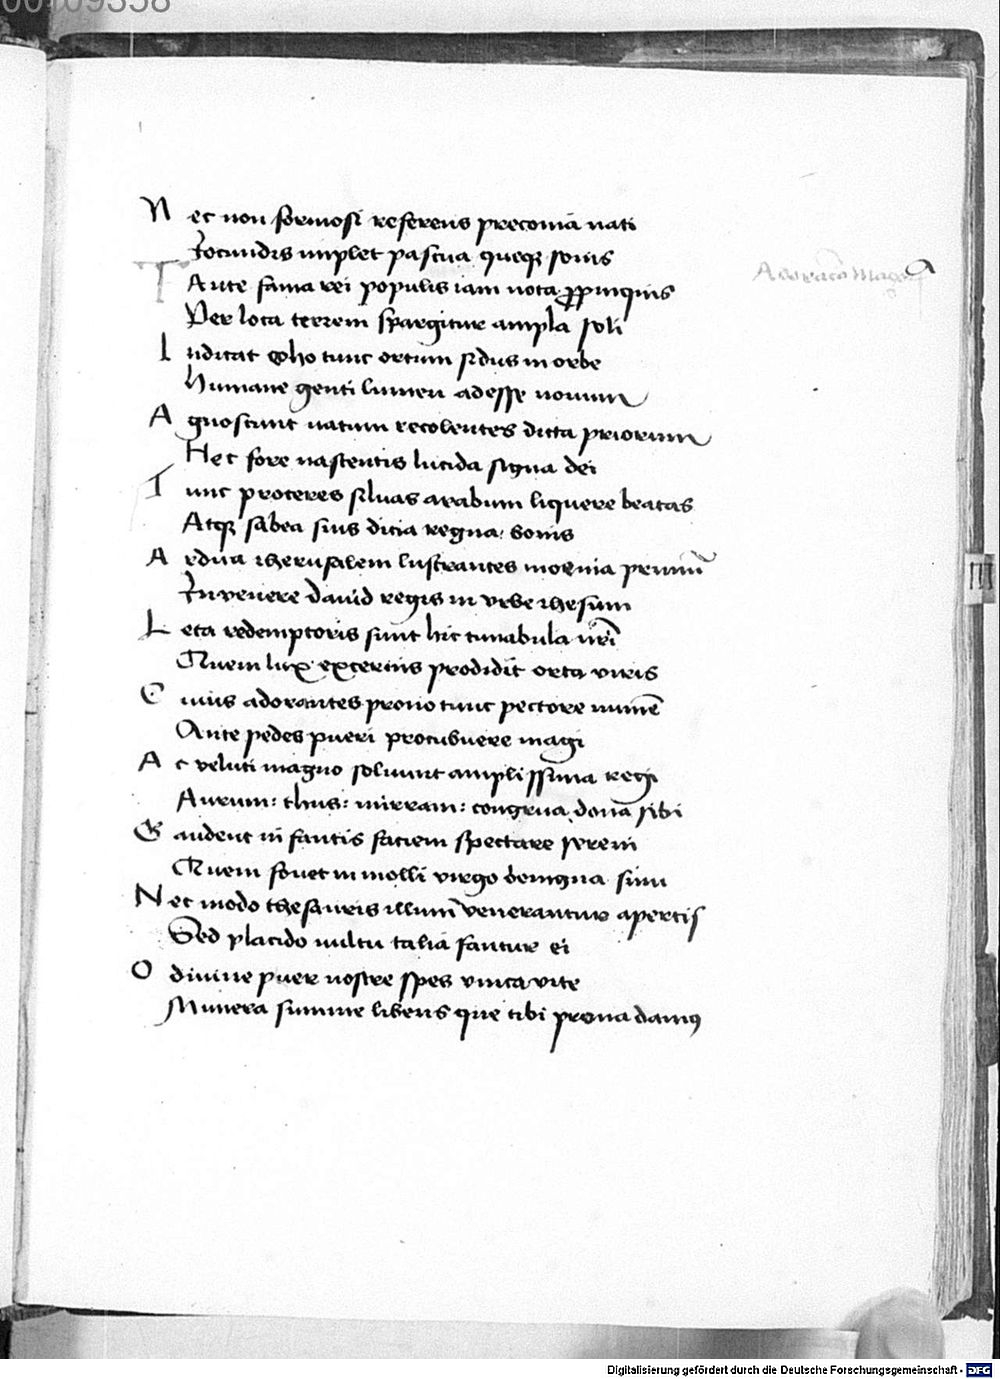 00109358
Nec non formosi referens preconia nati
Iocundis implet pascua queq; sonis
Tante fama rei populis iam nota ꝓpinquis
Per loca terrem spargitur ampla soli
Iudicat eoho tunc ortum sidus in orbe
Humane genti lumen adesse novum
Agnoscunt natum recolentes dicta priorum
Hec fore nascentis lucida signa dei
Tunc proceres siluas arabum liquere beatas
Atq; sabea suis dicia regna bonis
Ardua iherusalem lustrantes moenia primū
Invenere david regis in vrbe ihesum
Leta redemptoris sunt hic cunabula nr̄i
Quem lux exterius prodidit orta viris
Cuius adorantes prono tunc pectore numē
Ante pedes pueri procubuere magi
Ac veluti magno soluunt amplissima regi
Aurum: thus: mirram: congrua dona sibi
Gaudent infantis faciem spectare sereni
Quem fouet in molli virgo benigna sinu
Nec modo thesauris illum venerantur apertis
Sed placido uultu talia fantur ei
O divine puer nostre spes vnica vite
Munera summe libens que tibi prona damus
Adoracio Magor
III
Digitalisierung gefördert durch die Deutsche Forschungsgemeinschaft - DFG